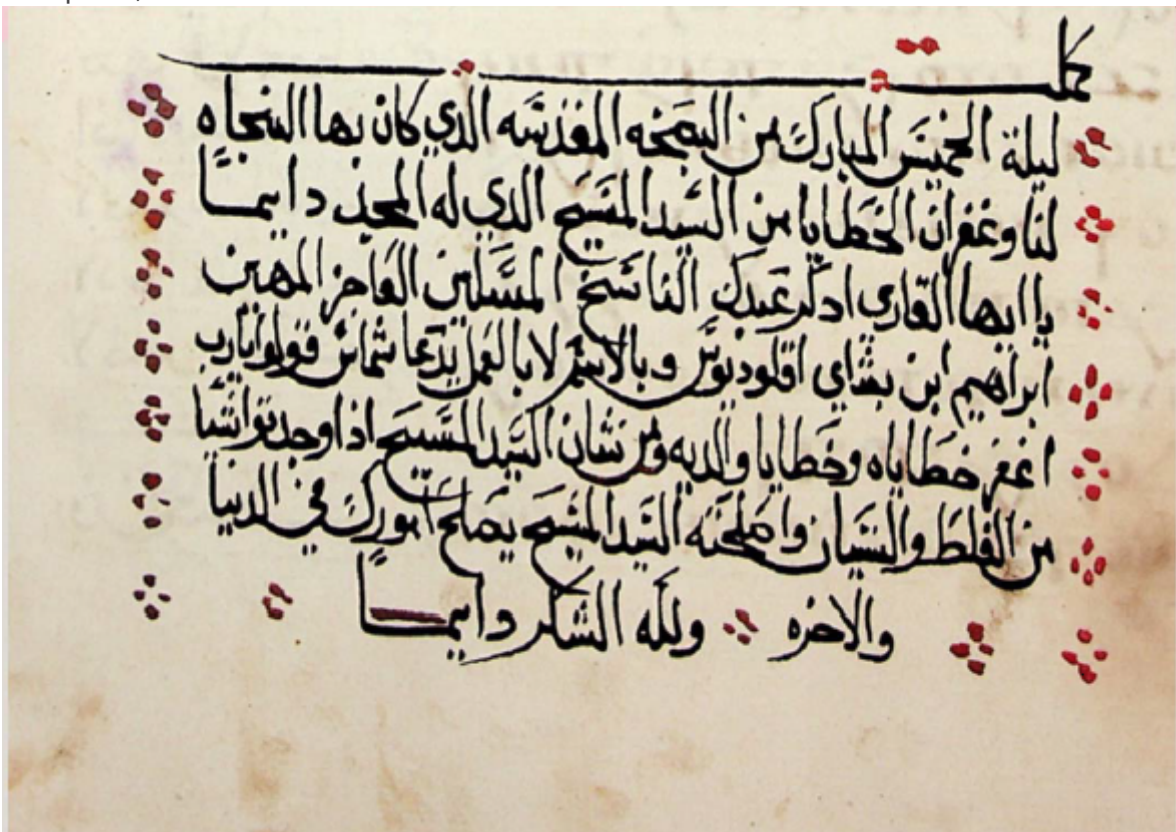 كمل
ليلة الخميس المبارك من البصخه المقدسه الدي كان بها النجاه
لنا وغفران الخطايا من السيد المسيح الدي له المجد دايما
يا ايها القاري ادكر عبدك الناسخ المسكين العاجز المهين
ابراهيم ابن بشاي اقلوديوس وبالاسم لا بالعمل يدعا شماس قولوا يارب
اغفر خطاياه وخطايا والديه ومن شان السيد المسيح ادا وجدتوا شيا
من الغلط والنسيان واصلحته السيد المسيح يصلح امورك في الدنيا
والاخره ولله الشكر دايما